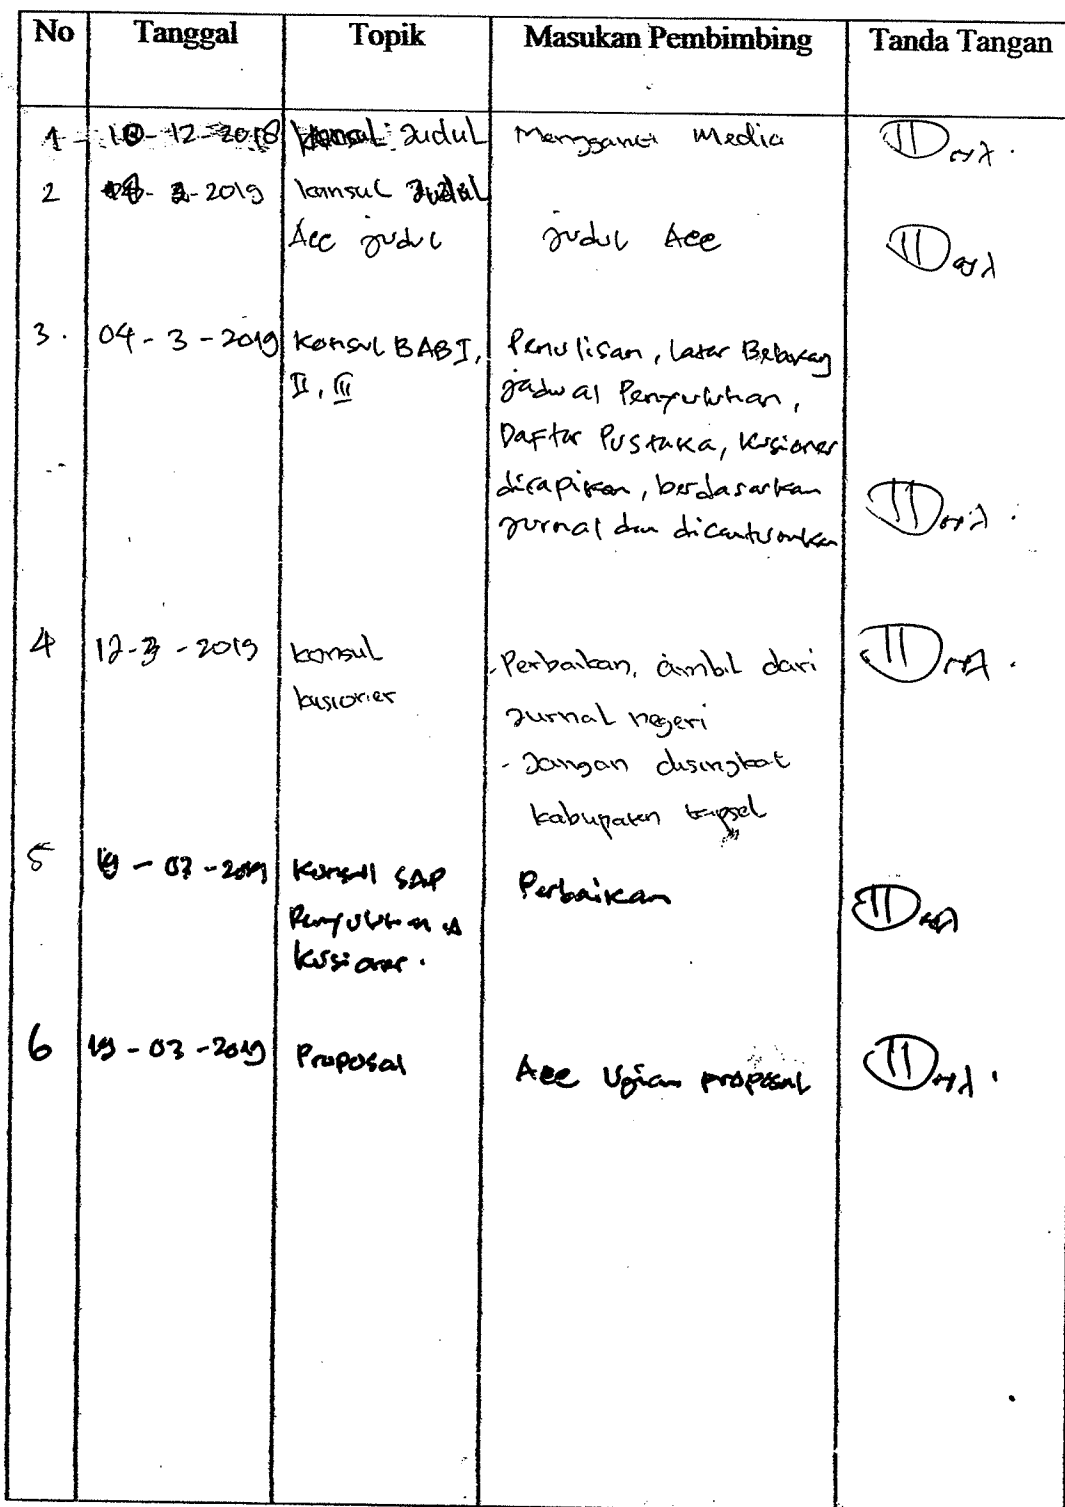 No Tanggal Topik Masukan Pembimbing Tanda Tangan
1 10-12-2018 konsul judul Mengganti Media
2 2-2019 konsul Judul
Acc judul judul Acc
3. 04-3-2019 Konsul BAB I, Penulisan, Latar Belakang
II, III jadwal Penyuluhan,
Daftar Pustaka, Kusioner
dirapikan, berdasarkan
jurnal dan dicantumkan
4 12-3-2019 konsul - Perbaikan, ambil dari
kusioner jurnal negeri
- Jangan disingkat
kabupaten tapsel
5 19-03-2019 Konsul SAP Perbaikan
Penyuluhan &
Kusioner.
6 19-03-2019 Proposal Acc Ujian proposal